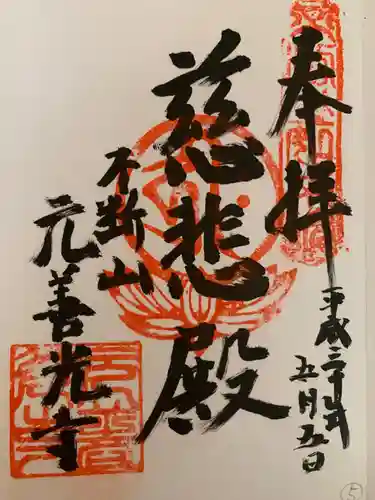 奉拝
平成三十年
五月五日
慈悲殿
不断山
元善光寺
⑤